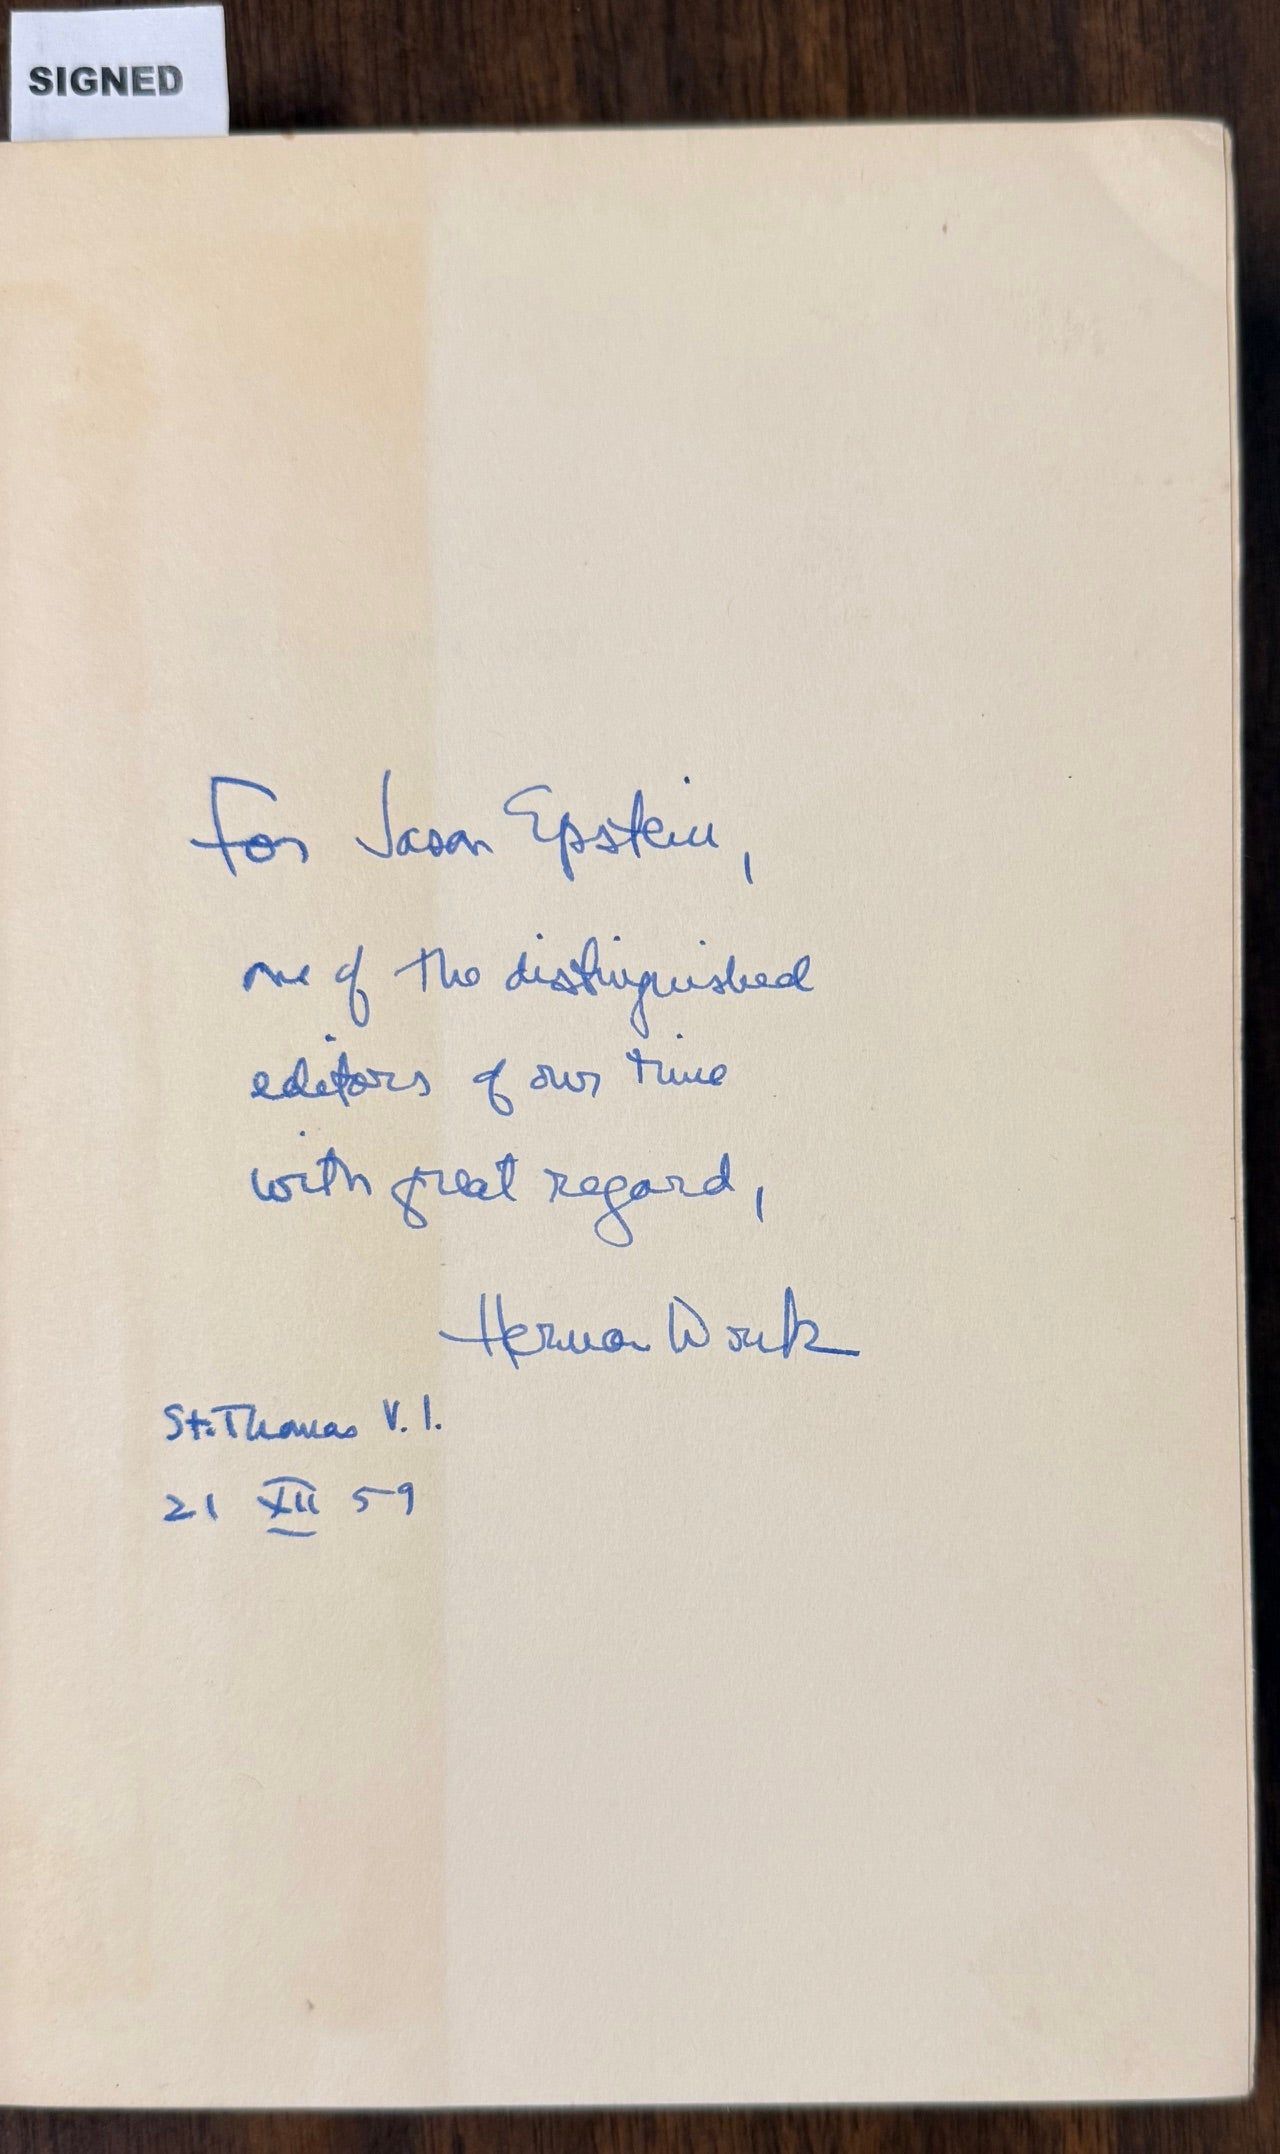 SIGNED
For Jason Epstein,
one of the distinguished
editors of our time
with great regard,
Herman Wouk
St. Thomas V.I.
21 XII 59